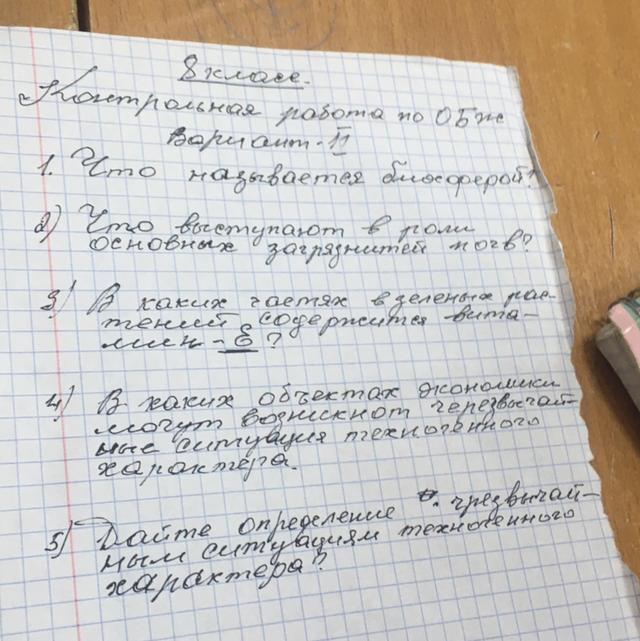 8 класс.
Контрольная работа по ОБЖ
Вариант-II
1. Что называется биосферой?
2) Что выступают в роли
основных загрязнитей почв?
3) В каких частях взеленых рас-
тений содержится вита-
мин-Е?
4) В каких объектах экономики
могут возникнот черезвычай-
ные ситуация техногенного
характера.
5) Дайте определение чрезвычай-
ным ситуациям техногенного
характера?